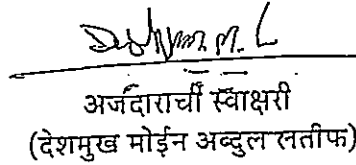 अर्जदाराची स्वाक्षरी
(देशमुख मोईन अब्दुल लतीफ)